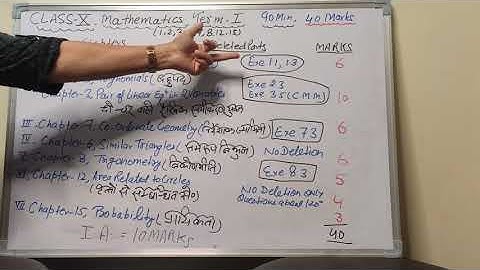 CLASS-X Mathematics Term-I 90 Min. 40 Marks
Deleted Parts MARKS
Exe 1.1, 1.3 6
(बहुपद)
Exe 2.3
Chapter-3, Pair of Linear Eqn in 2 Variables Exe 3.5 (C.M.M) 10
दो चर वाले रैखिक समीकरण युग्म
III Chapter-7, Co-ordinate Geometry (निर्देशांक ज्यामिति) Exe 7.3 6
Chapter-6, Similar Triangles (समरूप त्रिभुज) No Deletion 6
Chapter-8, Trigonometry (त्रिकोणमिति) Exe 8.3 5
Chapter-12, Area Related to Circles NO Deletion ONLY 4
(वृत्तों से सम्बन्धित क्षे०) Questions about 120°
VII Chapter-15, Probability (प्रायिकता) 3
I A. = 10 MARKS 40